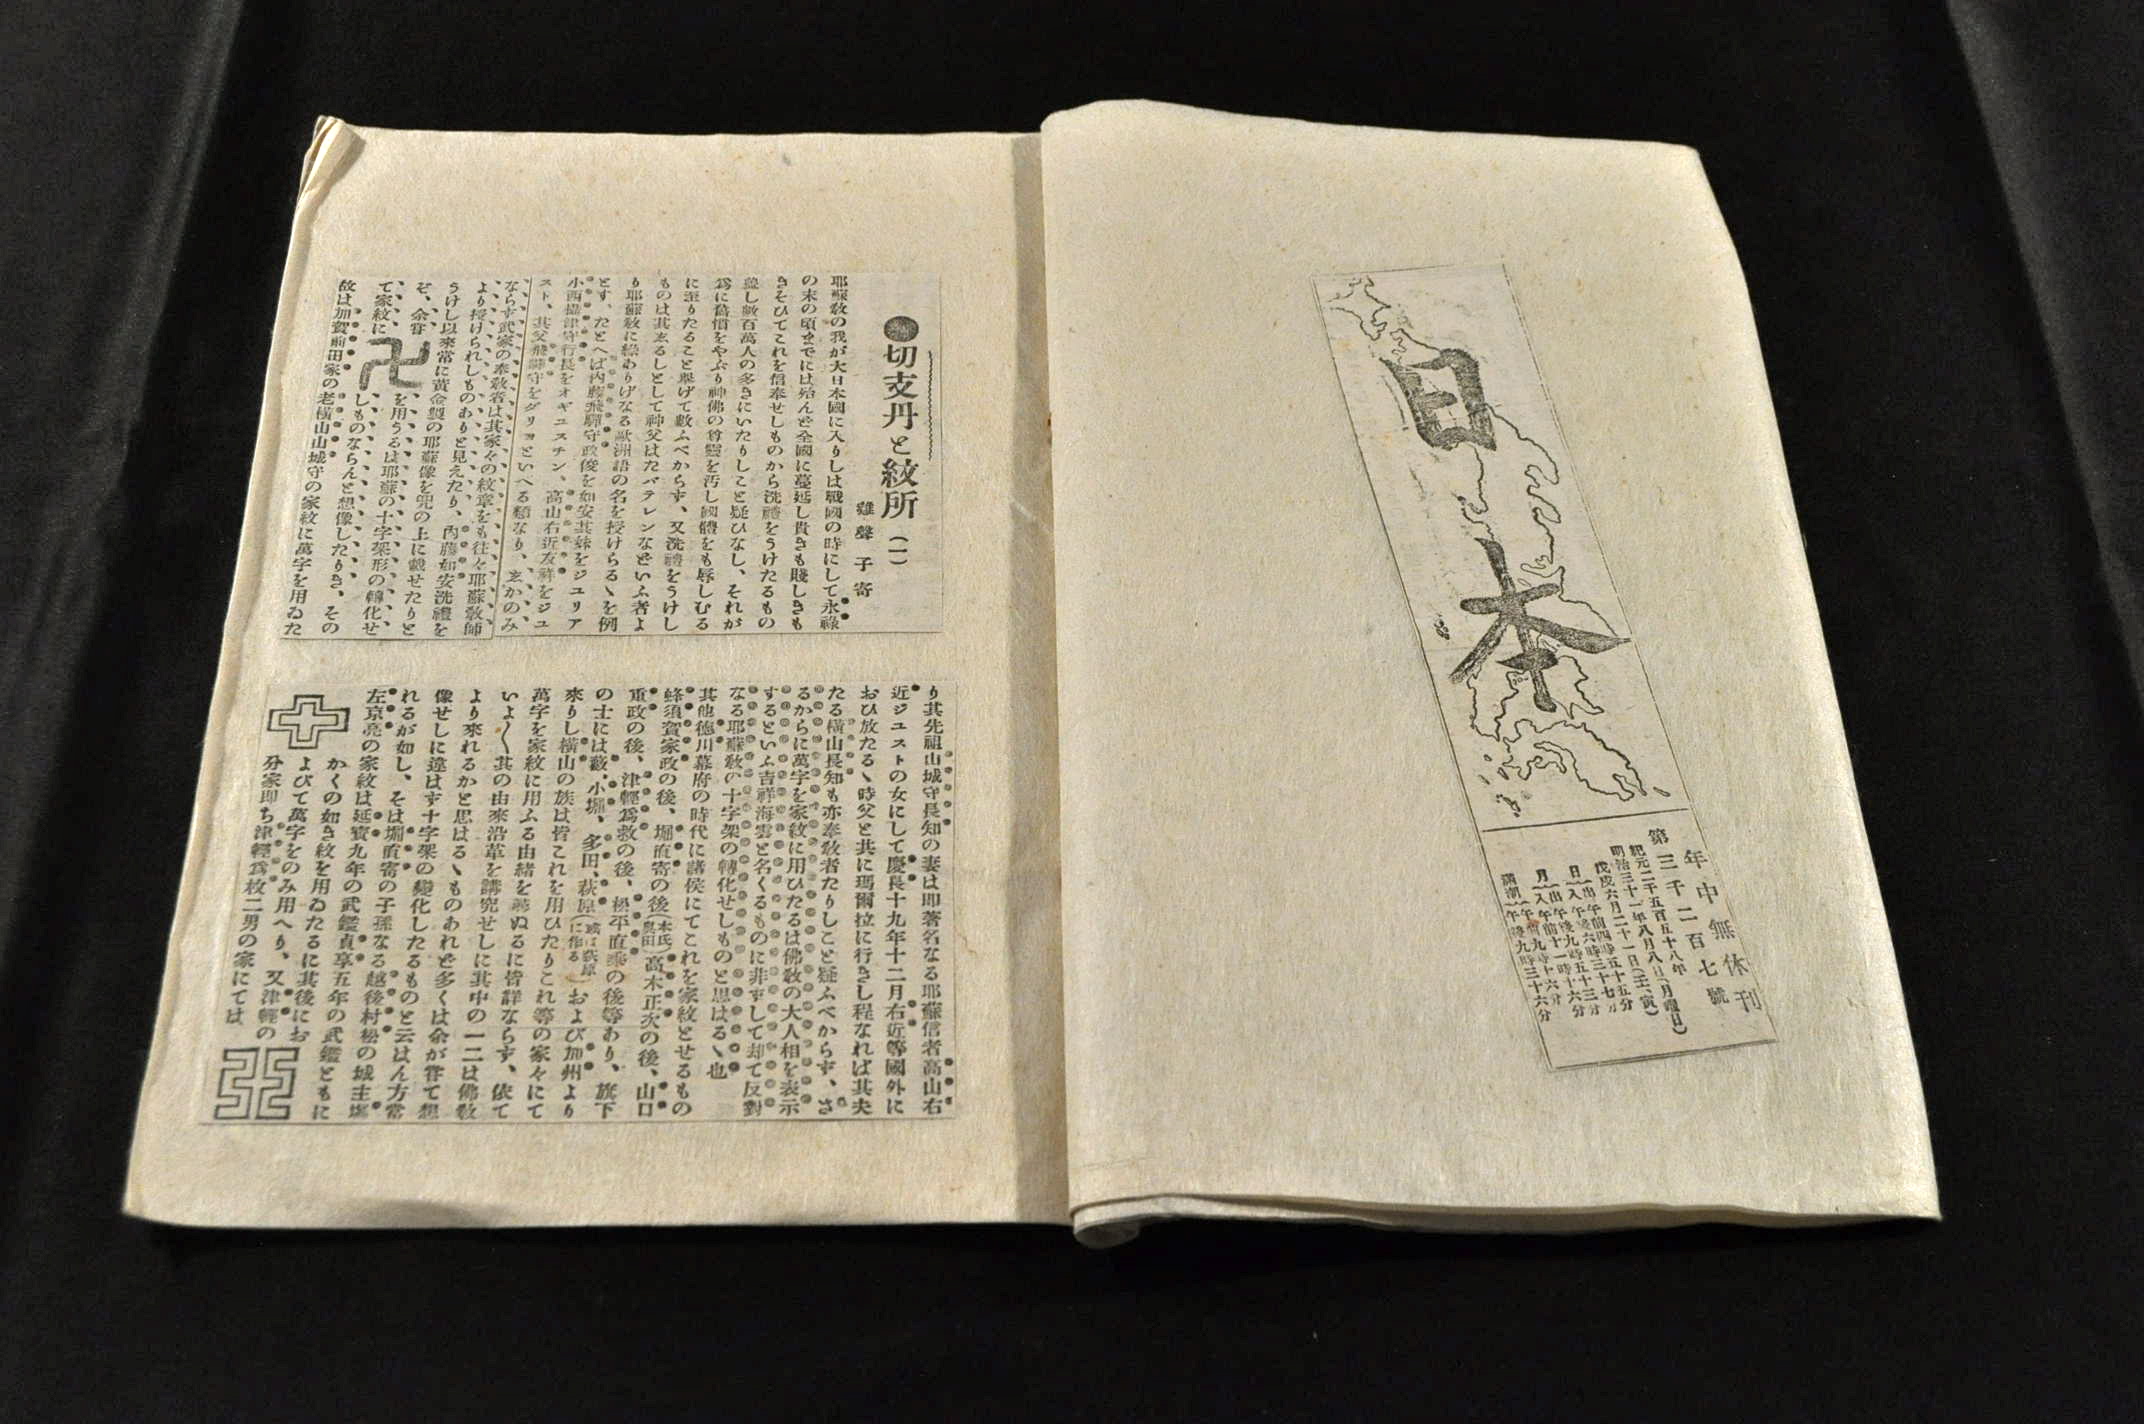 日本
年中無休刊
第三千二百七號
紀元二千五百五十八年
明治三十一年八月八日(月曜日)
戊戌六月二十一日(壬、寅)
日 出 午前四時五十五分
入 午後六時三十七分
月 出 午後九時五十三分
入 午前十一時十六分
滿潮 午前九時十六分
午後九時三十六分
●切支丹と紋所(一)
雞聲子寄
耶蘇敎の我が大日本國に入りしは戰國の時にして永祿
の末の頃までには殆んど全國に蔓延し貴きも賤しきも
きそひてこれを信奉せしものから洗禮をうけたるもの
蓋し數百萬人の多きにいたりしこと疑ひなし、それが
爲に舊慣をやぶり神佛の尊靈を汚し國體をも辱しむる
に至りたること擧げて數ふべからず、又洗禮をうけし
ものは其志るしとして神父はたバテレンなどいふ者よ
り耶蘇敎に緣ありげなる歐洲語の名を授けらるゝを例
とす、たとへば內藤飛驒守政俊を如安其妹をジユリア
小西攝津守行長をオギユスチン、高山右近友祥をジユ
スト、其父飛驒守をダリヨといへる類なり、志かのみ
ならず武家の奉敎者は其家々の紋章をも往々耶蘇敎師
より授けられしものありと見えたり、內藤如安洗禮を
うけし以來常に黃金製の耶蘇像を兜の上に戴せたりと
ぞ、余甞卍を用うるは耶蘇の十字架形の轉化せ
て家紋に しものならんと想像したりき、その
故は加賀前田家の老橫山山城守の家紋に萬字を用ゐた
り其先祖山城守長知の妻は卽著名なる耶蘇信者高山右
近ジユストの女にして慶長十九年十二月右近等國外に
おひ放たるゝ時父と共に瑪爾拉に行きし程なれば其夫
たる橫山長知も亦奉敎者たりしこと疑ふべからず、さ
るからに萬字を家紋に用ひたるは佛敎の大人相を表示
するといふ吉祥海雲と名くるものに非ずして却て反對
なる耶蘇敎の十字架の轉化せしものと思はるゝ也
其他德川幕府の時代に諸侯にてこれを家紋とせるもの
蜂須賀家政の後、堀直寄の後(本氏奧田)高木正次の後、山口
重政の後、津輕爲救の後、松平直乘の後等あり、旗下
の士には藪、小堀、多田、萩原(或は荻原に作る)および加州より
來りし橫山の族は皆これを用ひたりこれ等の家々にて
萬字を家紋に用ふる由緖を尋ぬるに皆詳ならず、依て
いよ〱其の由來沿革を講究せしに其中の一二は佛敎
より來れるかと思はるゝものあれど多くは余が甞て想
像せしに違はず十字架の變化したるものと云はん方當
れるが如し、そは堀直寄の子孫なる越後村松の城主堀
左京亮の家紋は延寶九年の武鑑貞享五年の武鑑ともに
かくの如き紋を用ゐたるに其後にお
よびて萬字をのみ用へり、又津輕の
分家卽ち津輕爲枚二男の家にては